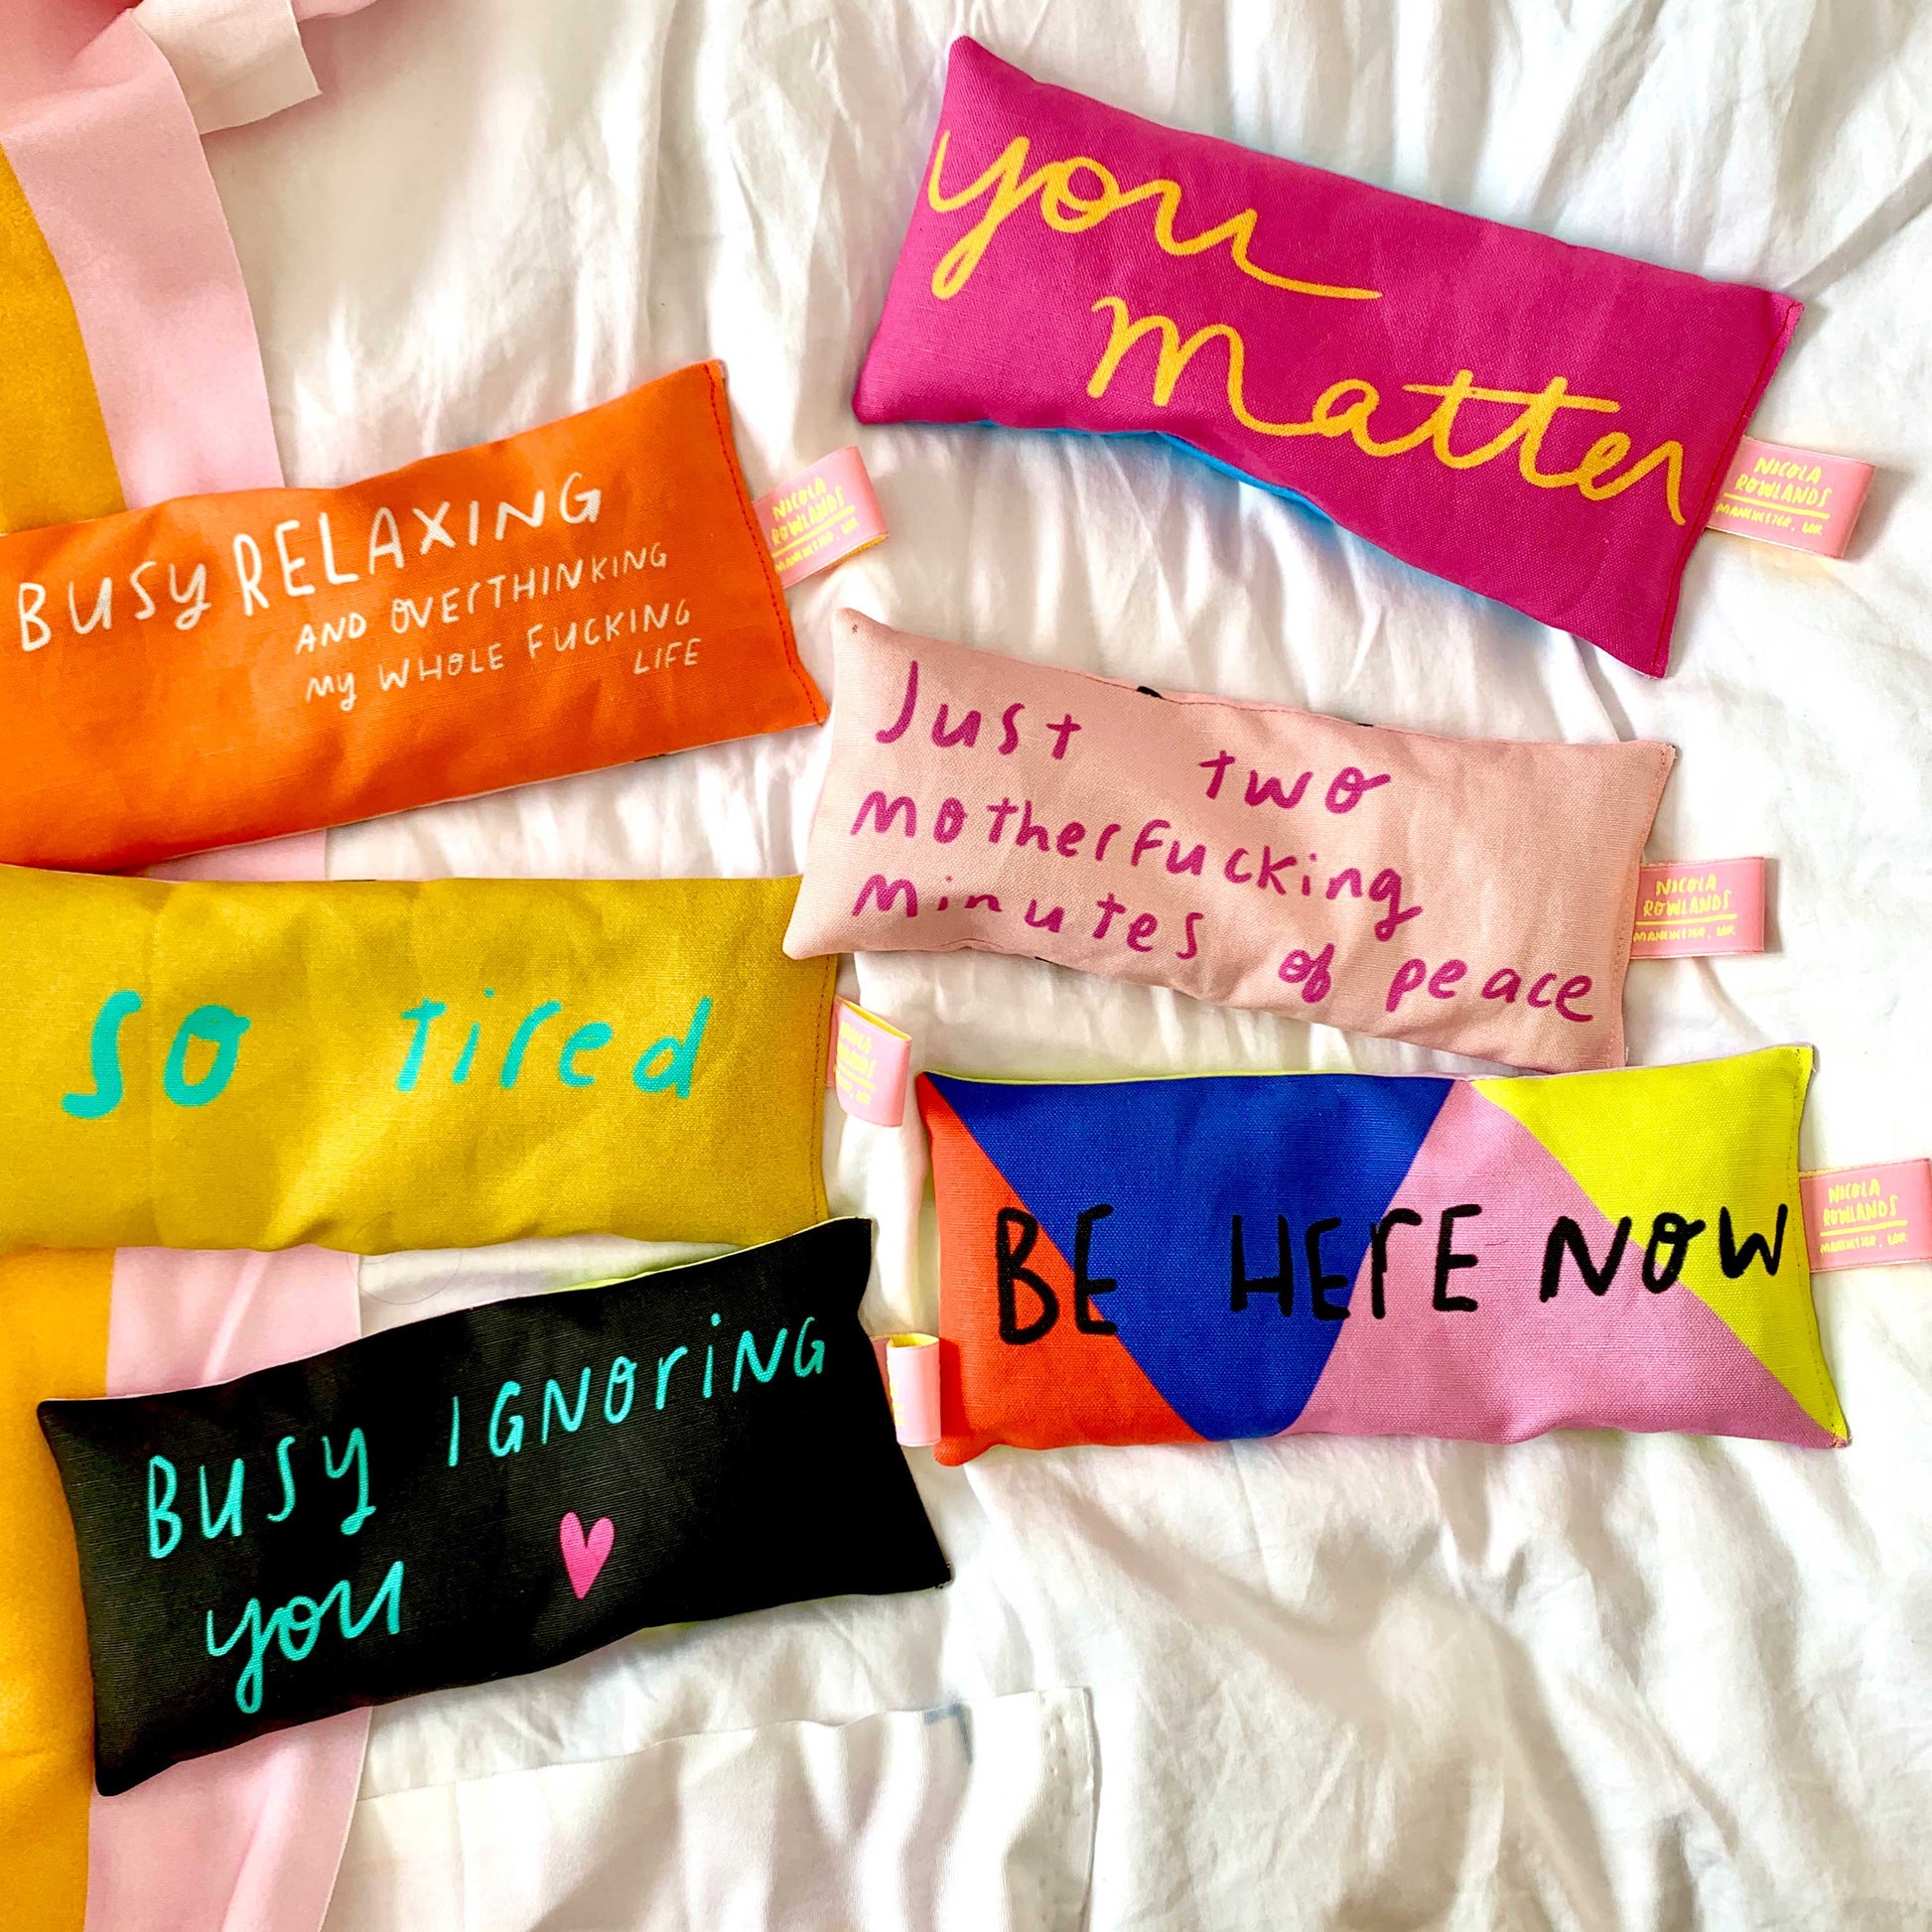 you
matter
NICOLA
ROWLANDS
MANCHESTER, UK
BUSY RELAXING
AND OVERTHINKING
MY WHOLE FUCKING
LIFE
NICOLA
ROWLANDS
MANCHESTER, UK
Just two
motherfucking
minutes of peace
NICOLA
ROWLANDS
MANCHESTER, UK
so tired
BE HERE NOW
NICOLA
ROWLANDS
MANCHESTER, UK
BUSY IGNORING
you